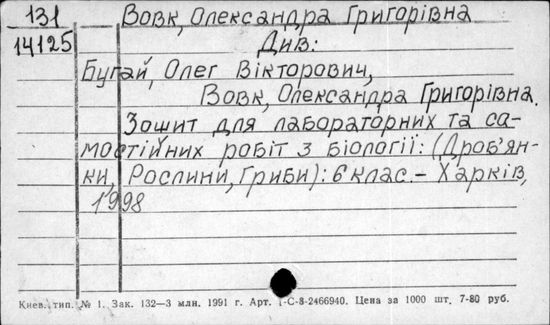 131
14125
Вовк, Олександра Григорівна
Див:
Бугай, Олег Вікторович,
Вовк, Олександра Григорівна.
Зошит для лабораторних та са-
мостійних робіт з біології: (Дроб'ян-
ки, Рослини, Гриби): 6 клас. – Харків,
1998
Киев. тип. № 1. Зак. 132—3 млн. 1991 г. Арт. 1-С-8-2466940. Цена за 1000 шт. 7-80 руб.